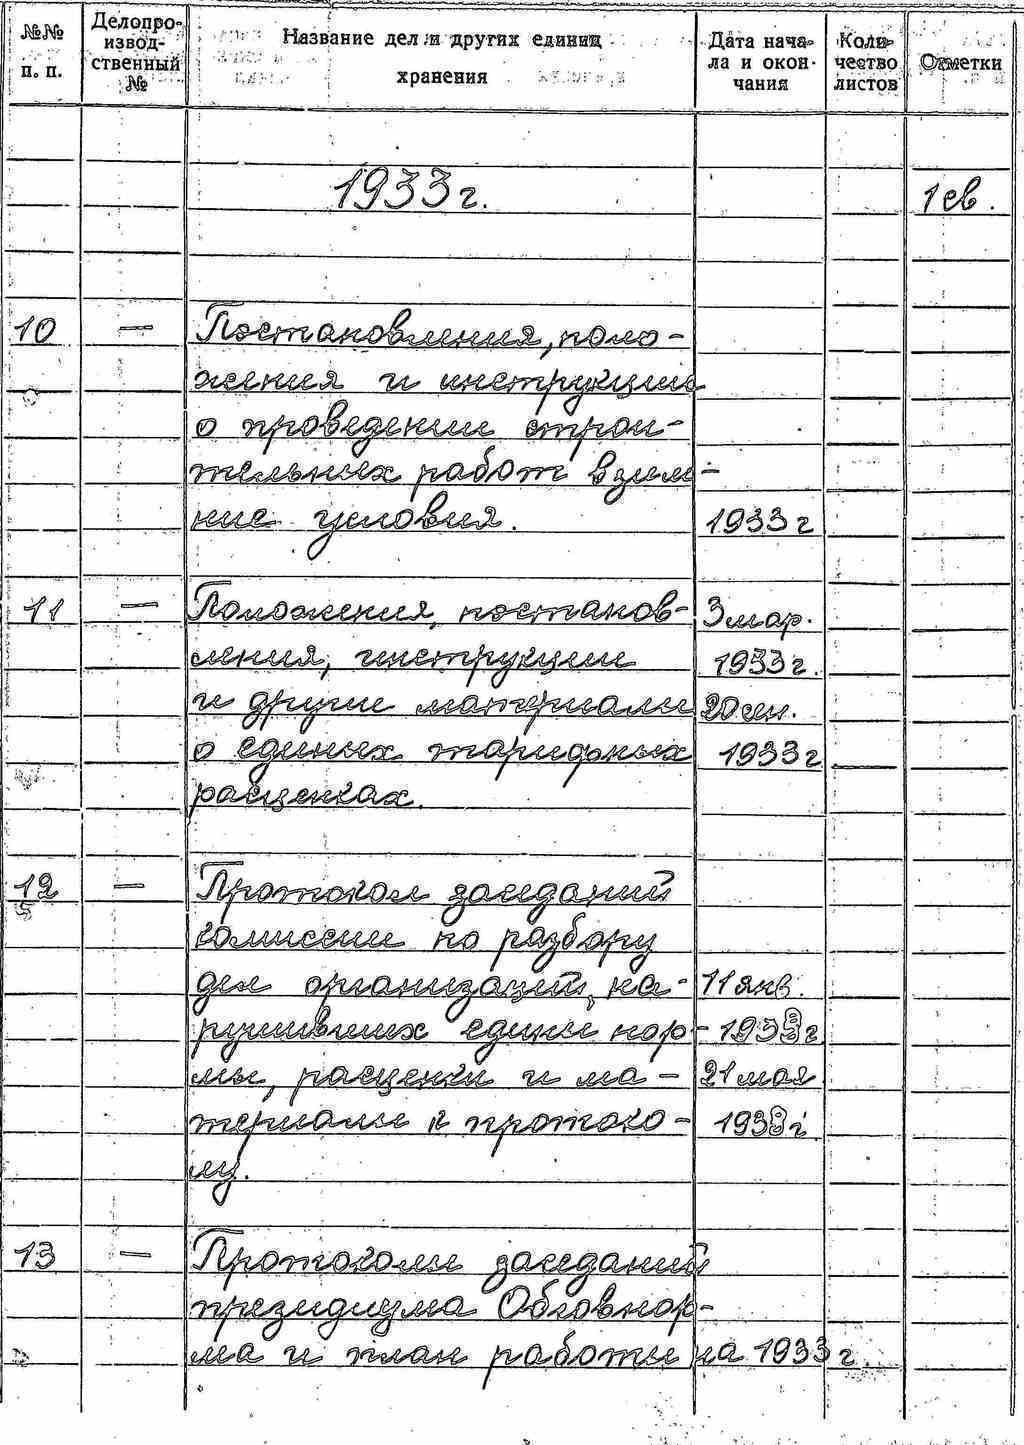 №№ п. п. Делопроизводственный № Название дел и других единиц хранения Дата начала и окончания Количество листов Отметки
1933 г. 1 св.
10 — Постановления, поло-
жения и инструкции
о проведении строи-
тельных работ в зим-
ние условия. 1933 г
11 — Положения, постанов- 3 мар.
ления, инструкции 1933 г.
и другие материалы 20 сен.
о единых тарифных 1933 г
расценках.
12 — Протокол заседаний
комиссии по разбору
дел организаций, на- 11 янв.
рушивших едины нор- 1933 г
мы, расценки и ма- 21 мая
териалы к протоко- 1933 г
лу.
13 — Протоколы заседаний
президиума Обловнор-
ма и план работы на 1933 г.